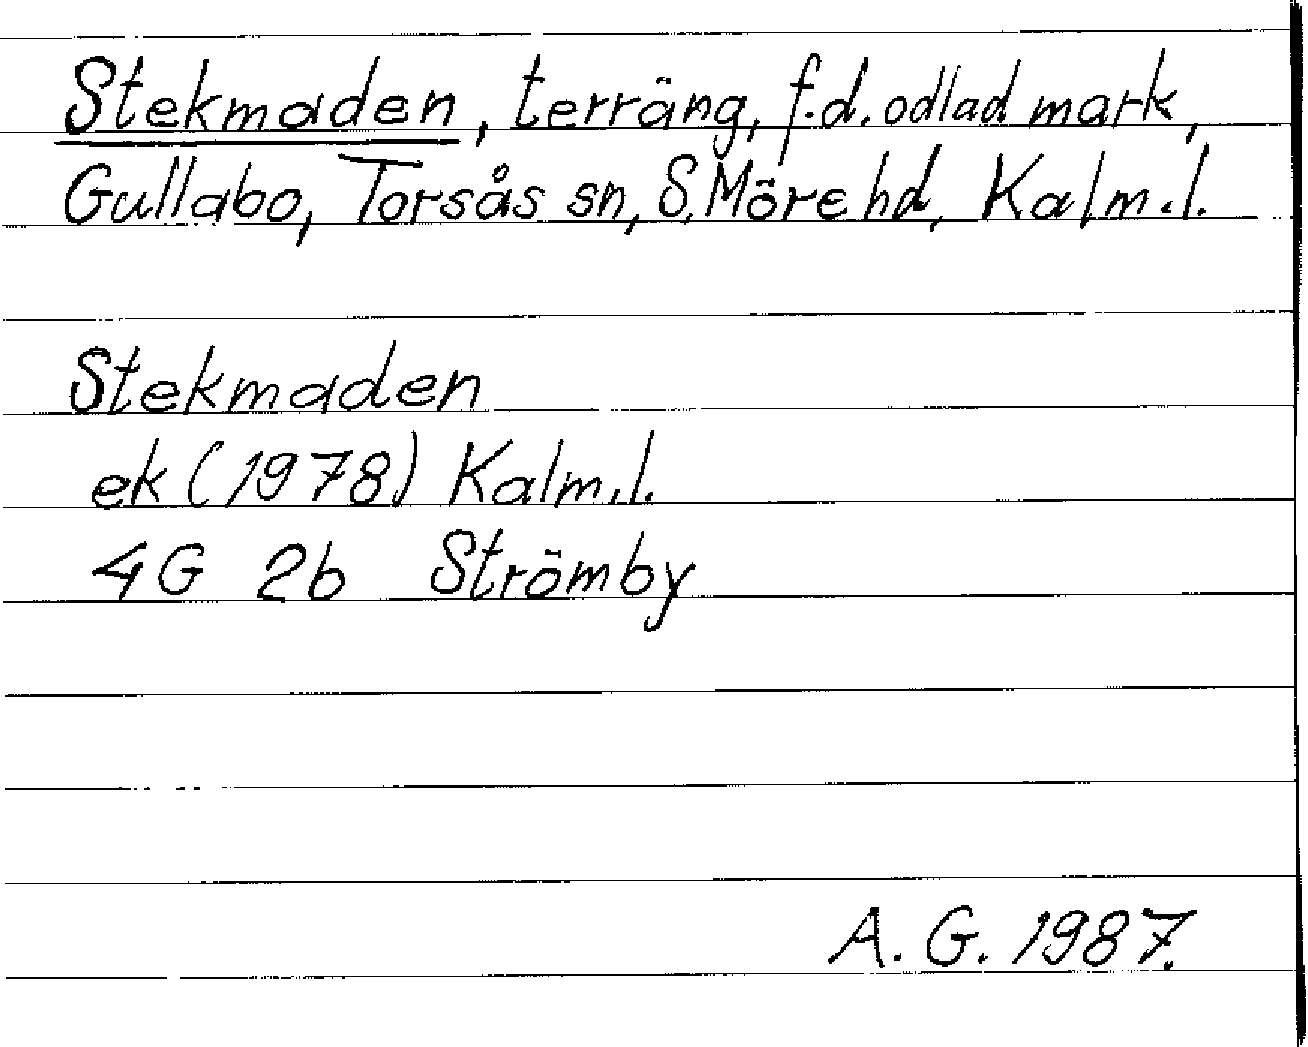 Stekmaden, terräng, f.d. odlad mark,
Gullabo, Torsås sn, S. Möre hd, Kalm. l.
Stekmaden
ek (1978) Kalm. l.
4G 2b Strömby
A. G. 1987.